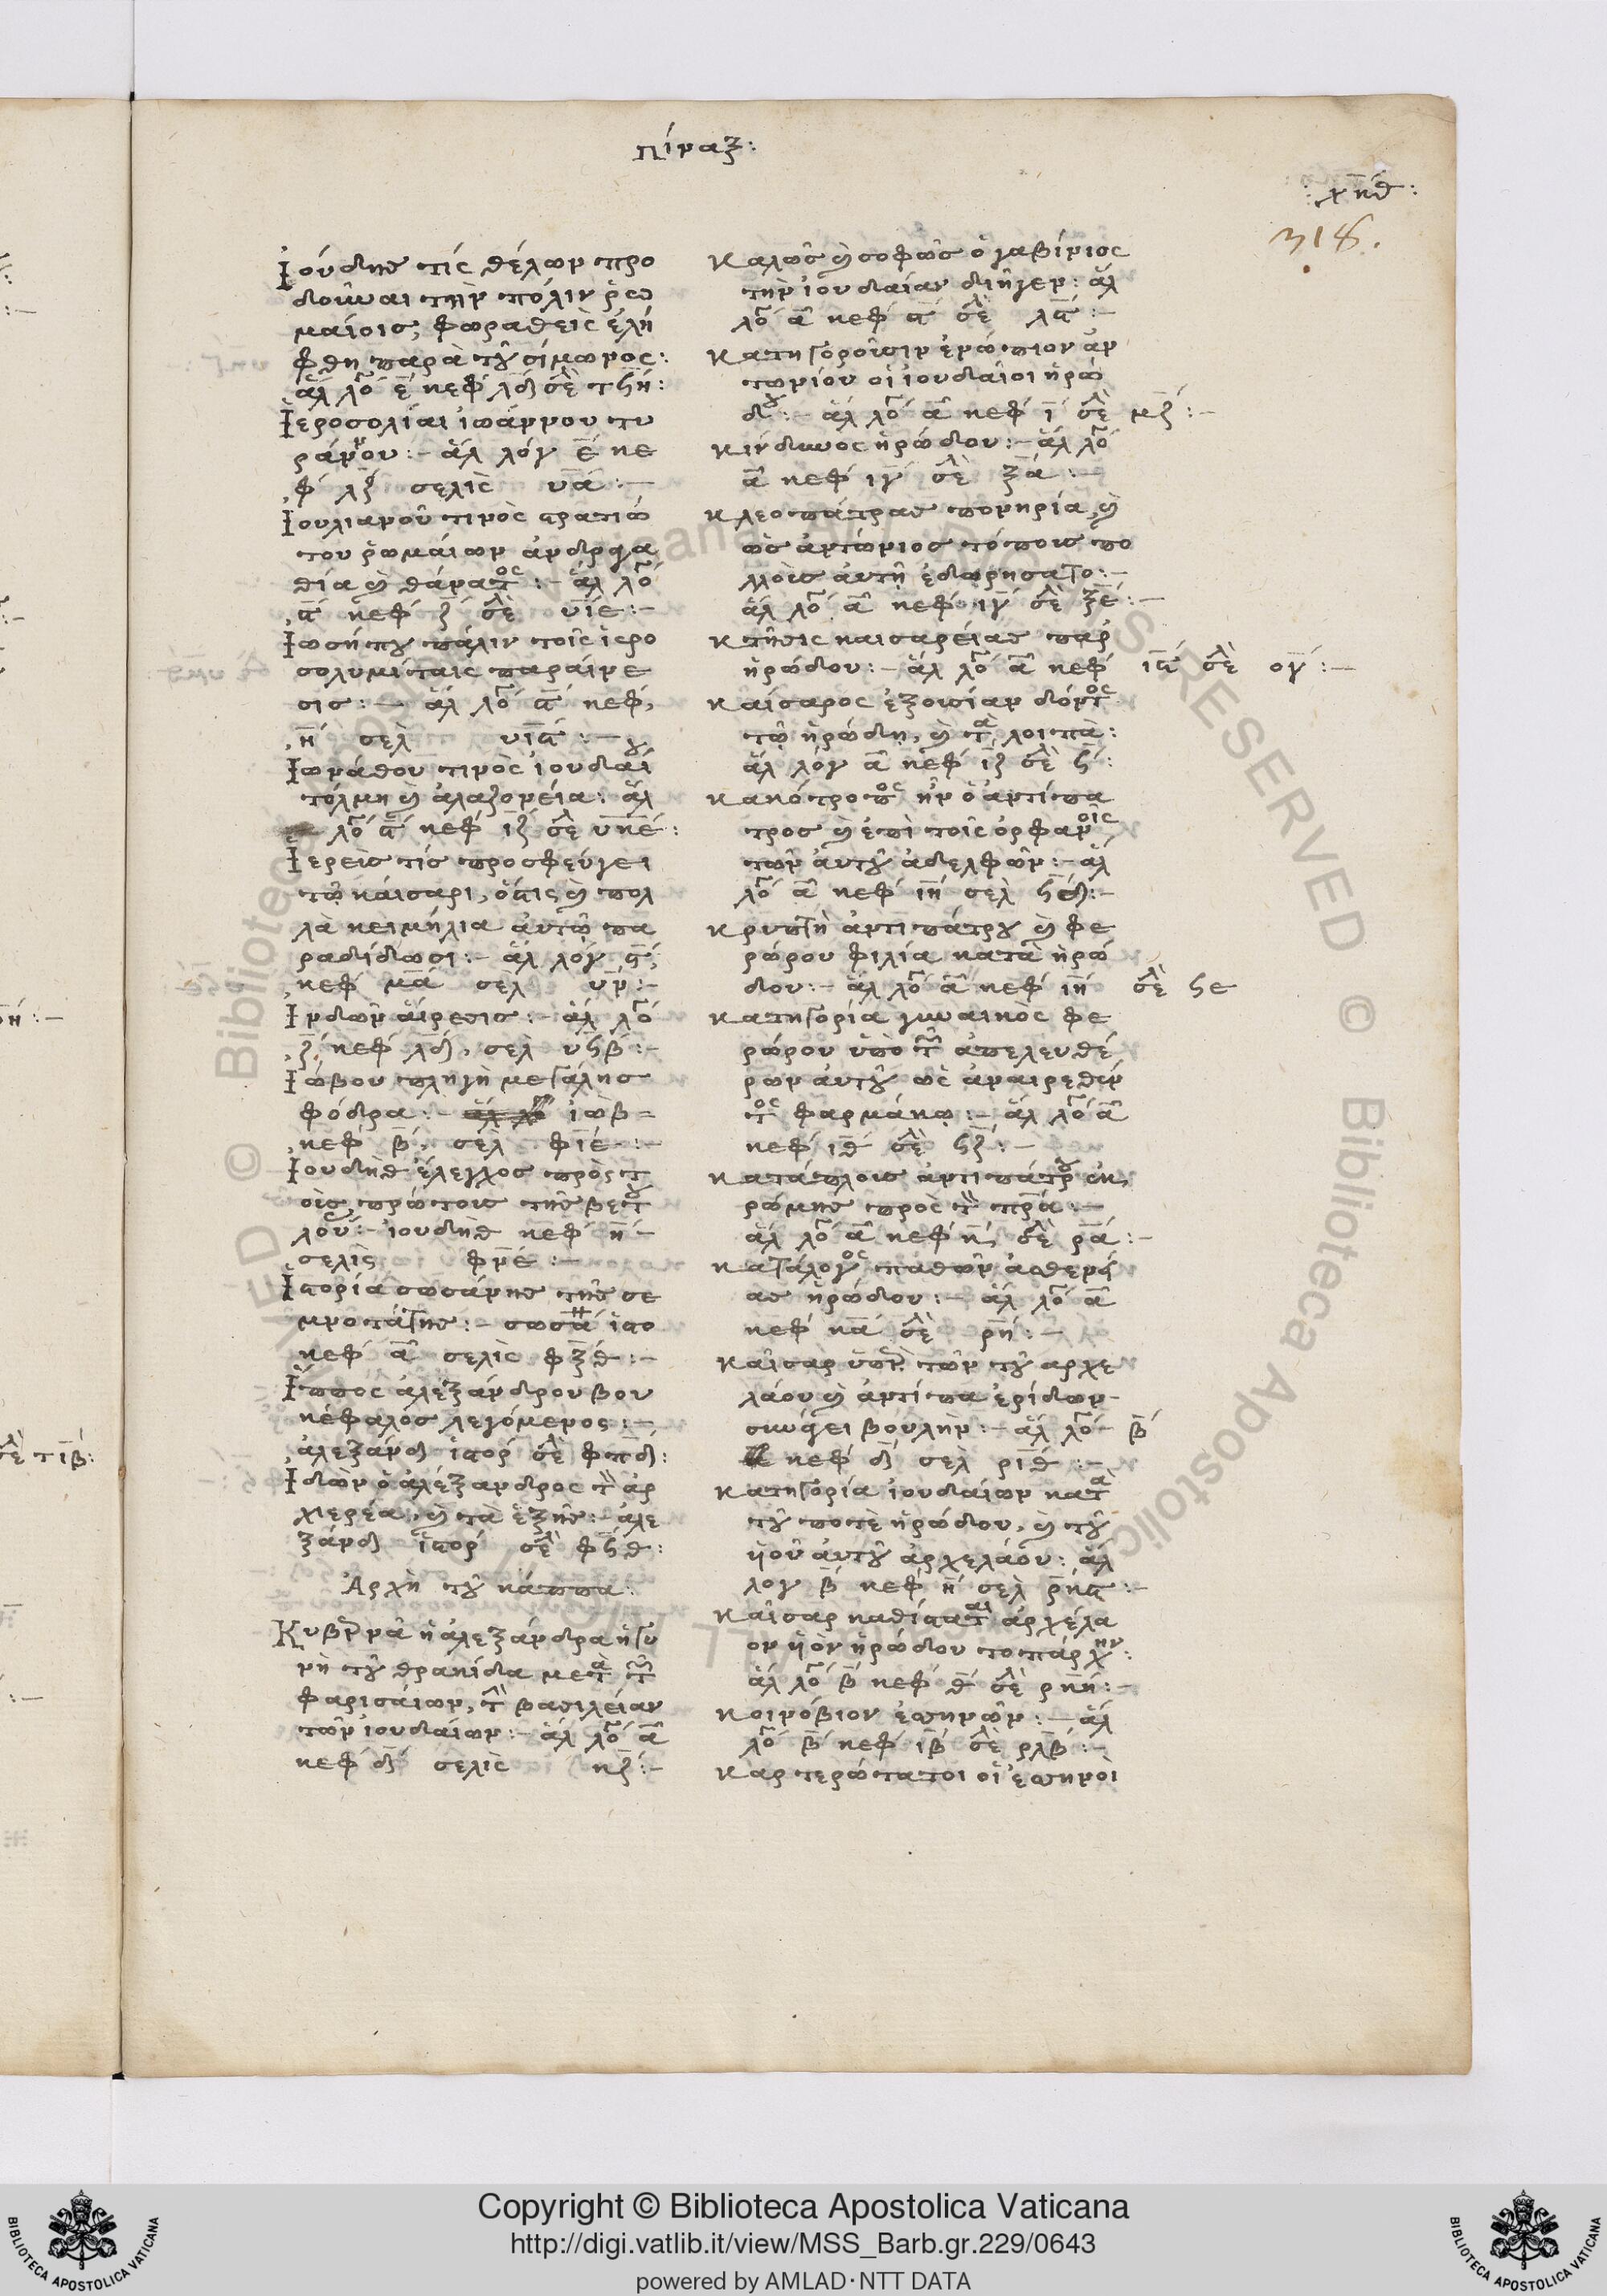 πίναξ:
χκθ:
318.
Ιούδης τίς θέλων προ
δοῦναι τὴν πόλιν ῥω
μαίοις, φωραθεὶς ἐλή
φθη παρὰ τοῦ σίμωνος:
ἁλ λό ε κεφ λδ σελ τϟη:
Ιεροσολίαι ἰωάννου τυ
ράννου:- ἁλ λόγ ε κε
φ λξ σελὶς υα:-
Ιουλιανοῦ τινὸς στρατιώ
του ῥωμαίων ἀνδραγα
θία καὶ θάνατος:- ἁλ λό
ς κεφ ζ σελ υιε:-
Ιωσήπου πάλιν τοῖς ἱερο
σολυμίταις παραίνε
σις:- ἁλ λό ς κεφ
η σελ υις:-
Ιωνάθου τινὸς ἰουδαίου
τόλμη καὶ ἀλαζονεία: ἁλ
λό ς κεφ ιζ σελ υκε:
Ιερεὺς τίς προσφεύγει
τῷ καίσαρι, ὅστις καὶ πολ
λὰ κειμήλια ἀυτῷ πα
ραδίδωσι:- ἁλ λόγ ς
κεφ μα σελ υν:-
Ινδῶν αἵρεσις:- ἁλ λό
ζ κεφ λδ, σελ υϟβ:-
Ιώβου πληγὴ μεγάλη σ
φόδρα:- ἰώβ-
κεφ β, σελ φιε:-
Ιουδὴθ ἔλεγχος πρὸς τ
οὺς πρώτους τῆς βετου
λού:- ἰουδὴθ κεφ η-
σελὶς φκε:-
Ιστορία σωσάννης τῆς σε
μνοτάτης:- ἱστο
κεφ α σελὶς φξθ:-
Ιππος ἀλεξάνδρου βου
κέφαλος λεγόμενος:-
ἀλεξάνδ ἱστορ σελ φπδ:
Ιδὼν ὁ ἀλέξανδρος τὸν ἀρ
χιερέα, καὶ τὰ ἑξῆς:- ἀλε
ξάνδ ἱστορ σελ φϟθ:
Ἀρχὴ τοῦ κάππα:
Κυβερνᾶ ἡ ἀλεξάνδρα ἡ γυ
νὴ τοῦ θρακίδα μετὰ τῶν
φαρισαίων, τὴν βασιλείαν
τῶν ἰουδαίων:- ἁλ λό α
κεφ δ σελὶς κζ:-
Καλῶς καὶ σοφῶς ὁ γαβίνιος
τὴν ἰουδαίαν διῆγεν: ἁλ
λό α κεφ ς σελ λς:-
Κατηγοροῦσιν ἐνώπιον ἀν
τωνίου οἱ ἰουδαίοι ἡρώ
δου:- ἁλ λό α κεφ ι σελ μζ:-
Κίνδυνος ἡρώδου:- ἁλ λό
α κεφ ιγ σελ ξα:-
Κλεοπάτρας πονηρία, καὶ
ὡς ἀντώνιος τόπους πο
λλοὺς ἀυτῇ ἐδωρήσατο:-
ἁλ λό α κεφ ιγ σελ ξε:-
Κτῆσις καισαρείας παρ
ἡρώδου:- ἁλ λό α κεφ ις σελ ογ:-
Καίσαρος ἐξουσίαν δόντος
τῷ ἡρώδῃ, καὶ τὰ λοιπὰ:
ἁλ λόγ α κεφ ιζ σελ ϟ:
Κακότροπος ἦν ὁ ἀντίπα
τρος καὶ ἐπὶ τοῖς ὀρφανοῖς
τῶν ἀυτοῦ ἀδελφῶν:- ἁλ
λό α κεφ ιη σελ ϟδ:-
Κρυπτὴ ἀντιπάτρου καὶ φε
ρώρου φιλία κατὰ ἡρώ
δου:- ἁλ λό α κεφ ιη σελ ϟε
Κατηγορία γυναικὸς φε
ρώρου ὑπὸ τῶν ἀπελευθέ
ρων ἀυτοῦ ὡς ἀναιρεθέν
τος φαρμάκῳ:- ἁλ λό α
κεφ ιθ σελ ϟζ:-
Κατάπλους ἀντιπάτρου ἐκ
ρώμης πρὸς τὸν πρα:-
ἁλ λό α κεφ κ, σελ ρα:-
Κατάλογος παθῶν ἀσθενεί
ας ἡρώδου:- ἁλ λό α
κεφ κα σελ ρη:-
Καῖσαρ ὑπὲρ τῶν τοῦ ἀρχε
λάου καὶ ἀντίπα ἐρίδων
σκυάζει βουλὴν:- ἁλ λό- β
κεφ δ σελ ριθ:-
Κατηγορία ἰουδαίων κατὰ
τοῦ ποτὲ ἡρώδου, καὶ τοῦ
ὑιοῦ ἀυτοῦ ἀρχελάου: ἁλ
λογ β κεφ η σελ ρκς:-
Καῖσαρ καθίσταται ἀρχέλα
ον ὑιὸν ἡρώδου τοπάρχην:
ἁλ λό β κεφ θ σελ ρκη:-
Κοινόβιον ἐσηνῶν:- ἁλ
λό β κεφ ιβ σελ ρλβ:-
Καρτερώτατοι οἱ ἐσηνοὶ
Copyright © Biblioteca Apostolica Vaticana
http://digi.vatlib.it/view/MSS_Barb.gr.229/0643
powered by AMLAD·NTT DATA